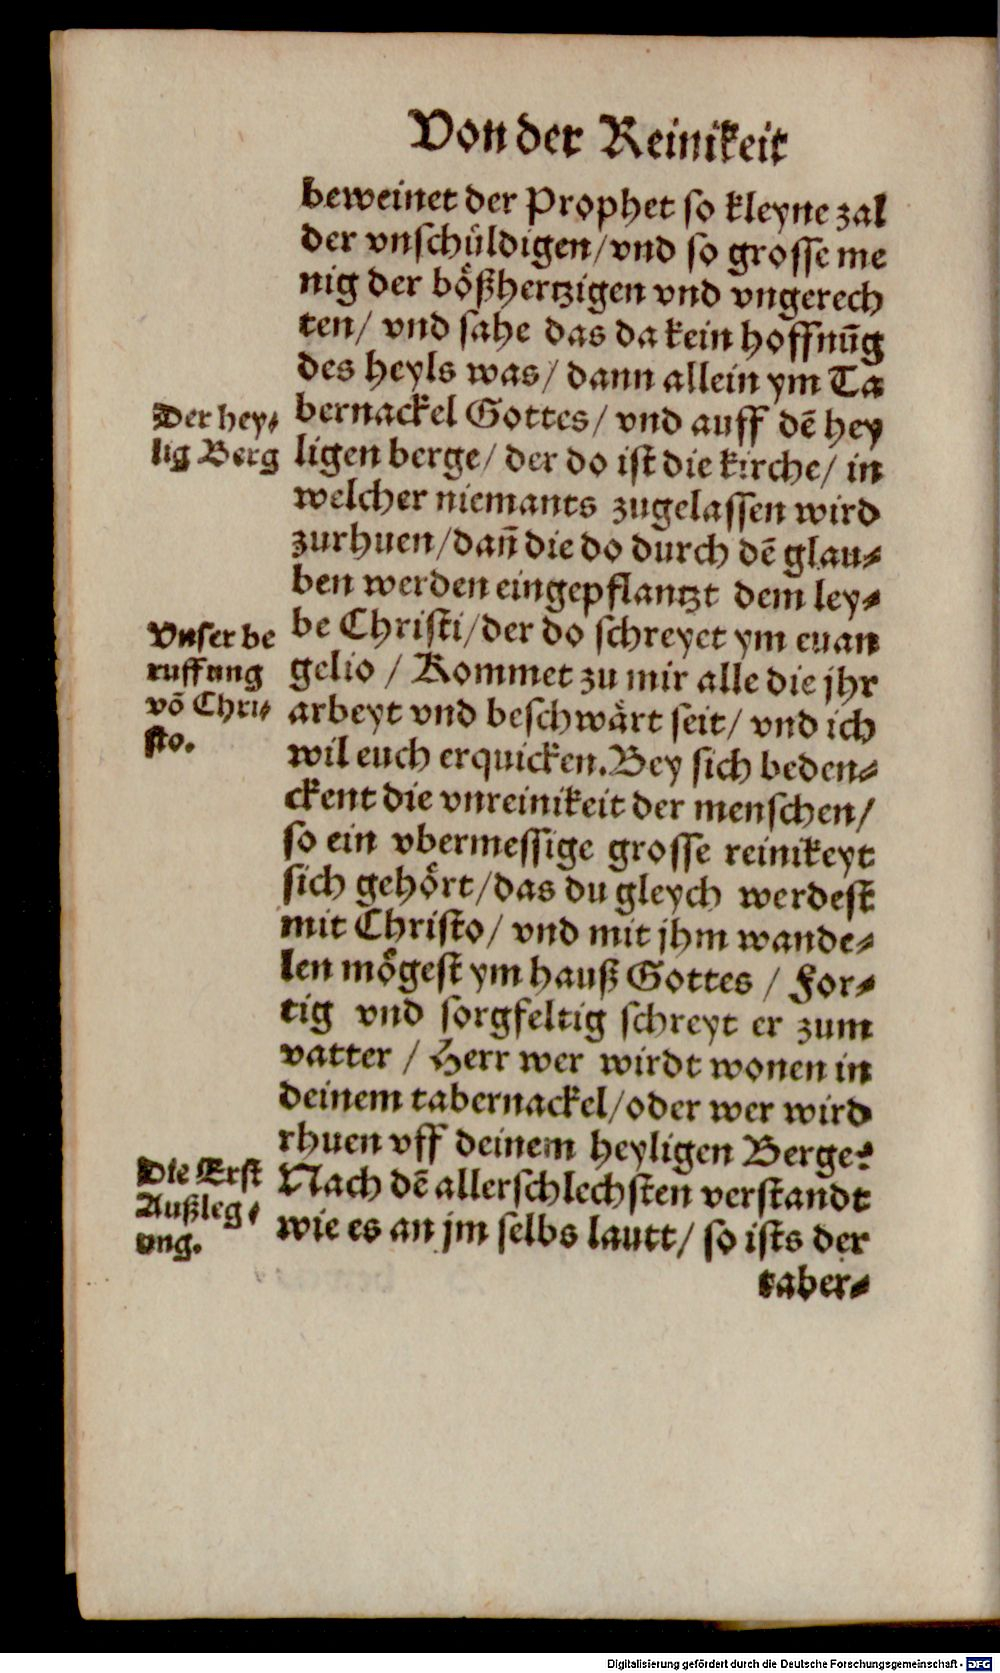 Von der Reinikeit
beweinet der Prophet so kleyne zal
der vnschüldigen/vnd so grosse me
nig der bößhertzigen vnd vngerech
ten/ vnd sahe das da kein hoffnūg
des heyls was/ dann allein ym Ta
bernackel Gottes/ vnd auff dē hey
ligen berge/ der do ist die kirche/ in
welcher niemants zugelassen wird
zurhuen/dañ die do durch dē glau-
ben werden eingepflantzt dem ley-
be Christi/der do schreyet ym euan
gelio / Kommet zu mir alle die jhr
arbeyt vnd beschwärt seit/ vnd ich
wil euch erquicken. Bey sich beden-
ckent die vnreinikeit der menschen/
so ein vbermessige grosse reinikeyt
sich gehört/das du gleych werdest
mit Christo/ vnd mit jhm wande-
len mögest ym hauß Gottes / For-
tig vnd sorgfeltig schreyt er zum
vatter / Herr wer wirdt wonen in
deinem tabernackel/oder wer wird
rhuen vff deinem heyligen Berge?
Nach dē allerschlechsten verstandt
wie es an jm selbs lautt/ so ists der
taber-
Der hey-
lig Berg
Vnser be
ruffung
vō Chri-
sto.
Die Erst
Außleg-
ung.
Digitalisierung gefördert durch die Deutsche Forschungsgemeinschaft - DFG